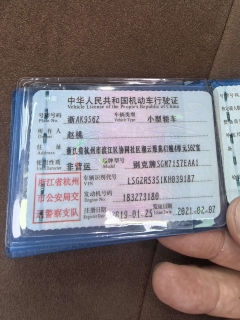 中华人民共和国机动车行驶证
Vehicle License of the People's Republic of China
号牌号码 浙AK956Z 车辆类型 小型轿车
Plate No. Vehicle Type
所有人 赵桃
Owner
住址 浙江省杭州市滨江区协同社区
Address
使用性质 非营运 品牌型号 SGM7157EAA1
Model
浙江省杭州
市公安局交
警察支队
车辆识别代号 LSGZR5351KH039187
VIN
发动机号码 183273180
Engine No.
注册日期 2019-01-25 发证日期 2021-02-07
Register Date Issue Date